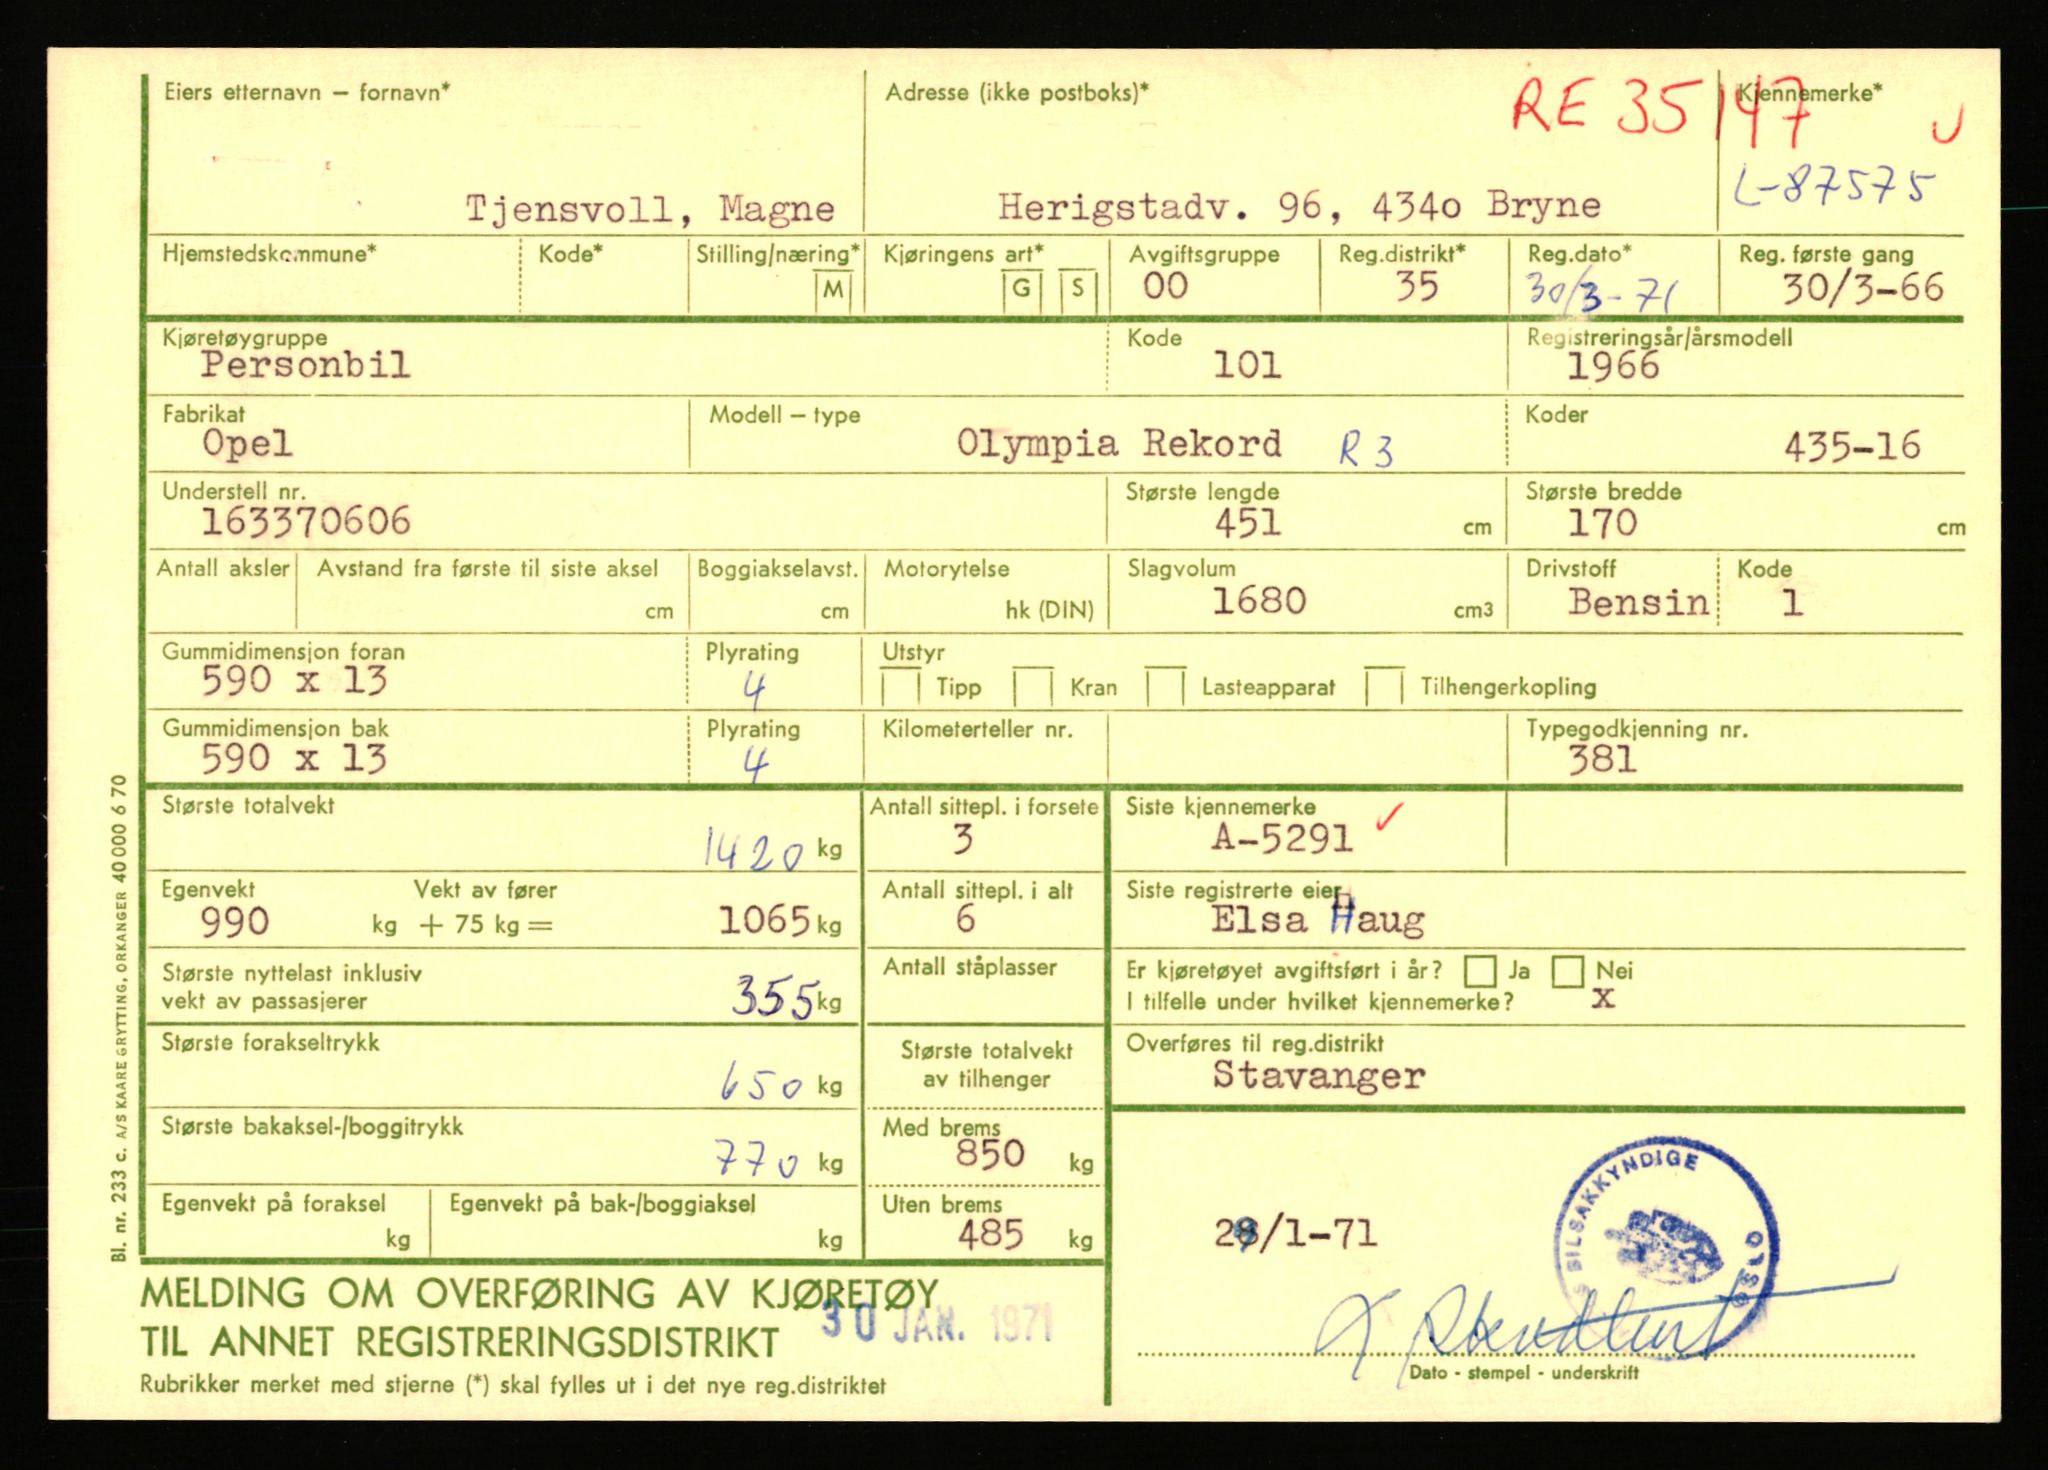 Eiers etternavn – fornavn*
Adresse (ikke postboks)*
RE 35147
Kjennemerke*
L-87575
Tjensvoll, Magne
Herigstadv. 96, 434o Bryne
Hjemstedskommune* Kode* Stilling/næring* Kjøringens art* Avgiftsgruppe Reg.distrikt* Reg.dato* Reg. første gang
M G S 00 35 30/3-71 30/3-66
Kjøretøygruppe Kode Registreringsår/årsmodell
Personbil 101 1966
Fabrikat Modell – type Koder
Opel Olympia Rekord R3 435-16
Understell nr. Største lengde Største bredde
163370606 451 cm 170 cm
Antall aksler Avstand fra første til siste aksel Boggiakselavst. Motorytelse Slagvolum Drivstoff Kode
cm cm hk (DIN) 1680 cm3 Bensin 1
Gummidimensjon foran Plyrating Utstyr
590 x 13 4 Tipp Kran Lasteapparat Tilhengerkopling
Gummidimensjon bak Plyrating Kilometerteller nr. Typegodkjenning nr.
590 x 13 4 381
Største totalvekt Antall sittepl. i forsete Siste kjennemerke
1420 kg 3 A-5291 ✓
Egenvekt Vekt av fører Antall sittepl. i alt Siste registrerte eier
990 kg + 75 kg = 1065 kg 6 Elsa Haug
Største nyttelast inklusiv Antall ståplasser Er kjøretøyet avgiftsført i år? Ja Nei
vekt av passasjerer 355 kg I tilfelle under hvilket kjennemerke? x
Største forakseltrykk Største totalvekt Overføres til reg.distrikt
650 kg av tilhenger Stavanger
Største bakaksel-/boggitrykk Med brems
770 kg 850 kg
Egenvekt på foraksel Egenvekt på bak-/boggiaksel Uten brems
kg kg 485 kg
/1-71
BILSAKKYNDIGE
OSLO
MELDING OM OVERFØRING AV KJØRETØY
TIL ANNET REGISTRERINGSDISTRIKT
30 JAN. 1971
Rubrikker merket med stjerne (*) skal fylles ut i det nye reg.distriktet
Dato - stempel - underskrift
Bl. nr. 233 c. A/S KAARE GRYTTING, ORKANGER 40 000 6 70